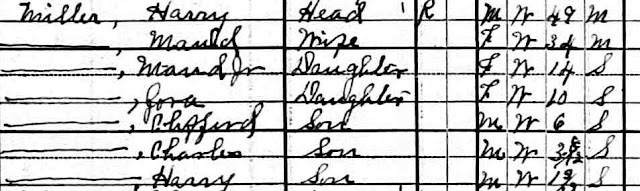 Miller, Harry Head R M W 49 M
——, Maud Wife F W 34 M
——, Maud Jr Daughter F W 14 S
——, Daughter F W 10 S
——, Clifford Son M W 6 S
——, Charles Son M W 3 S
——, Harry Son M W 1 S